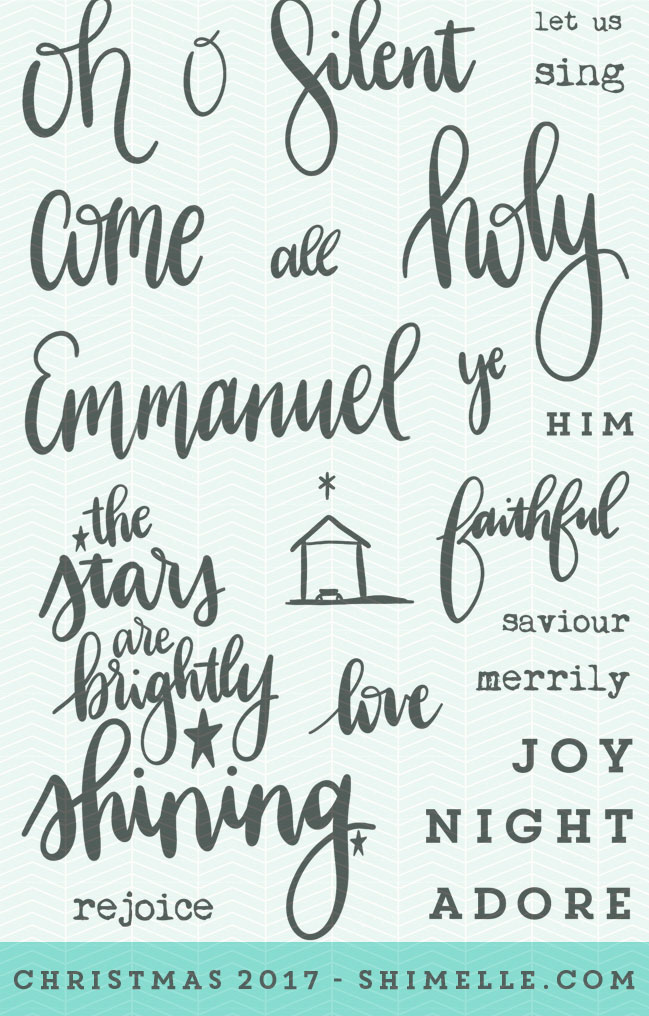 oh
o
Silent
let us
sing
come
all
holy
Emmanuel
ye
HIM
the
stars
are
brightly
shining
faithful
saviour
merrily
love
JOY
NIGHT
ADORE
rejoice
CHRISTMAS 2017 - SHIMELLE.COM